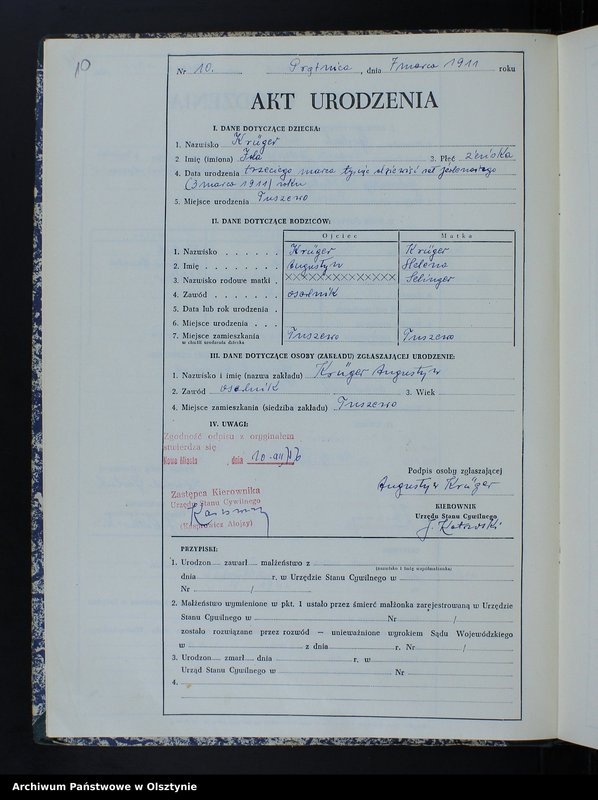 10
Nr 10. Prątnica, dnia 7 marca 1911 roku
AKT URODZENIA
I. DANE DOTYCZĄCE DZIECKA:
1. Nazwisko Krüger
2. Imię (imiona) Ida 3. Płeć żeńska
4. Data urodzenia trzeciego marca tysiąc dziewięćset jedenastego
(3 marca 1911) roku
5. Miejsce urodzenia Tuszewo
II. DANE DOTYCZĄCE RODZICÓW:
Ojciec Matka
1. Nazwisko Krüger Krüger
2. Imię Augustyn Helena
3. Nazwisko rodowe matki XXXXXXXXXXXXXX Selinger
4. Zawód osadnik
5. Data lub rok urodzenia
6. Miejsce urodzenia
7. Miejsce zamieszkania Tuszewo Tuszewo
w chwili urodzenia dziecka
III. DANE DOTYCZĄCE OSOBY (ZAKŁADU) ZGŁASZAJĄCEJ URODZENIE:
1. Nazwisko i imię (nazwa zakładu) Krüger Augustyn
2. Zawód osadnik 3. Wiek
4. Miejsce zamieszkania (siedziba zakładu) Tuszewo
IV. UWAGI:
Zgodność odpisu z oryginałem
stwierdza się
dnia 10.
Podpis osoby zgłaszającej
Augustyn Krüger
Zastępca Kierownika
Urzędu Stanu Cywilnego
(Kasprowicz Alojzy)
KIEROWNIK
Urzędu Stanu Cywilnego
PRZYPISKI:
1. Urodzon zawarł małżeństwo z
(nazwisko i imię współmałżonka)
dnia r. w Urzędzie Stanu Cywilnego w
Nr /
2. Małżeństwo wymienione w pkt. 1 ustało przez śmierć małżonka zarejestrowaną w Urzędzie
Stanu Cywilnego w Nr /
zostało rozwiązane przez rozwód — unieważnione wyrokiem Sądu Wojewódzkiego
w z dnia r. Nr /
3. Urodzon zmarł dnia r. w
Urząd Stanu Cywilnego w Nr
4.
Archiwum Państwowe w Olsztynie